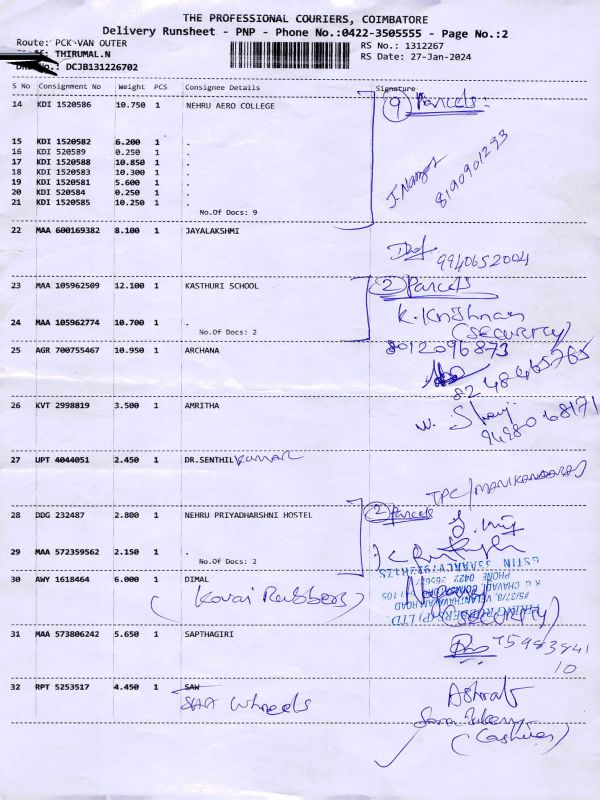 THE PROFESSIONAL COURIERS, COIMBATORE
Delivery Runsheet - PNP - Phone No.:0422-3505555 - Page No.:2
Route: PCK VAN OUTER
RS No.: 1312267
THIRUMAL.N
RS Date: 27-Jan-2024
No.: DCJB131226702
S No Consignment No Weight PCS Consignee Details Signature
14 KDI 1520586 10.750 1 NEHRU AERO COLLEGE
9 Parcels:
15 KDI 1520582 6.200 1 .
16 KDI 520589 0.250 1 .
17 KDI 1520588 10.850 1 .
18 KDI 1520583 10.300 1 .
19 KDI 1520581 5.600 1 .
20 KDI 520584 0.250 1 .
21 KDI 1520585 10.250 1 .
8190901293
No.Of Docs: 9
22 MAA 600169382 8.100 1 JAYALAKSHMI
9940652004
23 MAA 105962509 12.100 1 KASTHURI SCHOOL
2 Parcels
K. Krishnan
24 MAA 105962774 10.700 1 .
(Security)
No.Of Docs: 2
8012096873
25 AGR 700755467 10.950 1 ARCHANA
8248465765
26 KVT 2998819 3.500 1 AMRITHA
9498068171
27 UPT 4044051 2.450 1 DR.SENTHIL kumar
TPC/MANIKANDARAJ
28 DDG 232487 2.800 1 NEHRU PRIYADHARSHNI HOSTEL
2 Parcels
29 MAA 572359562 2.150 1 .
No.Of Docs: 2
30 AWY 1618464 6.000 1 DIMAL
(Kovai Rubbers)
K G CHAVADI
(Security)
31 MAA 573806242 5.650 1 SAPTHAGIRI
7598394110
32 RPT 5253517 4.450 1 SAW
SAA Wheels
Ashrab
(Cashier)